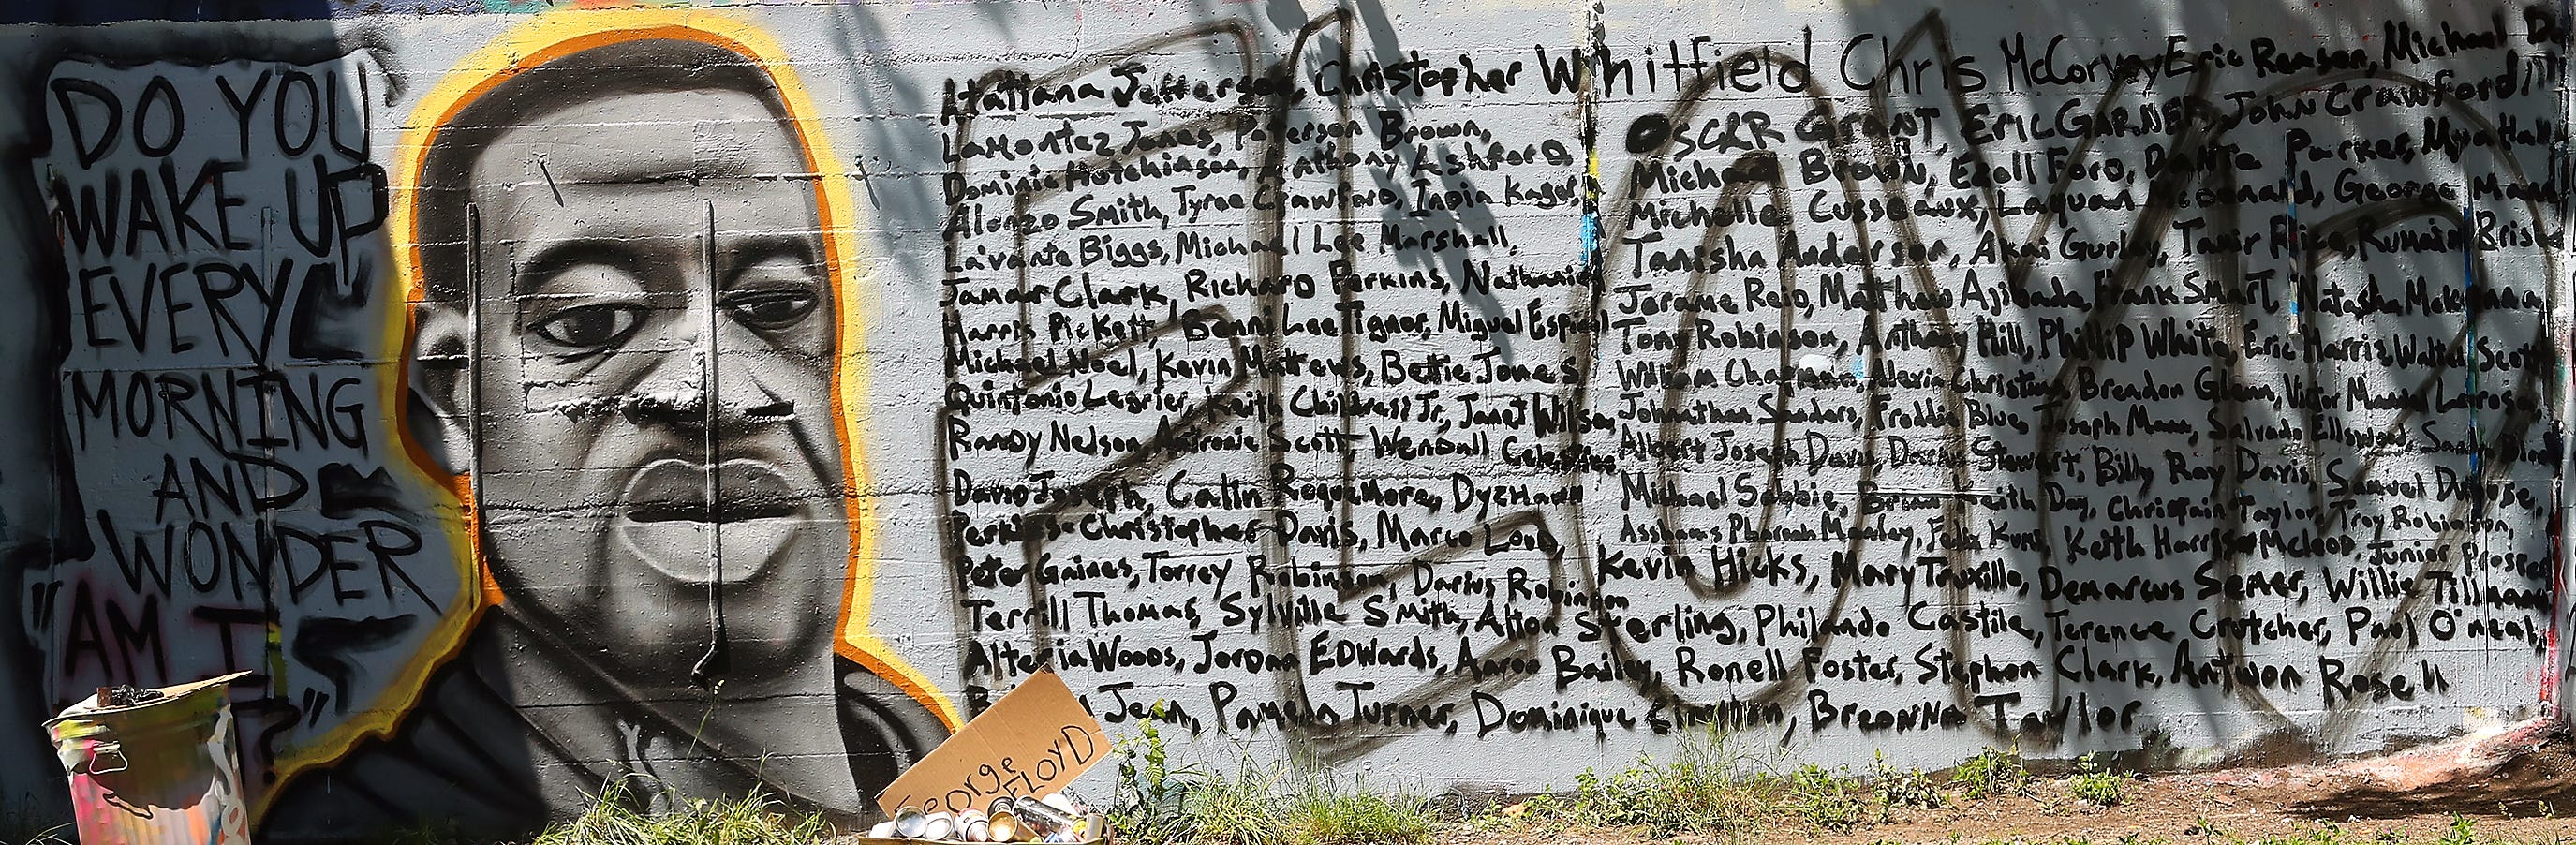 DO YOU
WAKE UP
EVERY
MORNING
AND
WONDER
"AM I
?"
Atatiana Jefferson, Christopher Whitfield Chris McCorvey Eric Reason, Michael
LaMontez Jones, Paterson Brown,
Dominic Hutchinson, Anthony Ashford
Alonzo Smith, Tyree Crawford, India Kager,
La'vante Biggs, Michael Lee Marshall,
Jamar Clark, Richard Perkins, Nathaniel
Harris Pickett, Benni Lee Tignor, Miguel Espinal
Michael Noel, Kevin Matthews, Bettie Jones
Quintonio Legrier, Keith Childress Jr, Janet Wilson,
Randy Nelson, Antronie Scott, Wendell Celestine,
David Joseph, Calin Roquemore, Dyzhawn
Perkins Christopher Davis, Marco Loud,
Peter Gaines, Torrey Robinson, Darius Robinson
Terrill Thomas, Sylville Smith, Alton Sterling, Philando Castile, Terence Crutcher, Paul O'neal,
Alteria Woods, Jordan Edwards, Aaron Bailey, Ronell Foster, Stephon Clark, Antwon Rose II
Jean, Pamela Turner, Dominique Clayton, Breonna Taylor
OSCAR GRANT, ERIC GARNER, JOHN Crawford
Michael Brown, Ezell Ford, Dante Parker, Mya Hall
Michelle Cusseaux, Laquan McDonald, George Mann
Tanisha Anderson, Akai Gurley, Tamir Rice, Rumain Brisb
Jerame Reid, Matthew Ajibade, Frank Smart, Natasha McKenna
Tony Robinson, Anthony Hill, Phillip White, Eric Harris, Walter Scott
William Chapman, Alexia Christian, Brendon Glenn, Victor Manuel Larosa,
Johnathan Sanders, Freddie Blue, Joseph Mann, Salvado Ellswood,
Albert Joseph Davis, Darrius Stewart, Billy Ray Davis, Samuel Dubose,
Michael Sabbie, Brian Keith Day, Christian Taylor, Troy Robinson,
Asshams Pharoah Manley, Felix Kumi, Keith Harrison Mcleod, Junior Prosper
Kevin Hicks, Mary Truxillo, Demarcus Semer, Willie Tillman
FLOYD
George
FLOYD